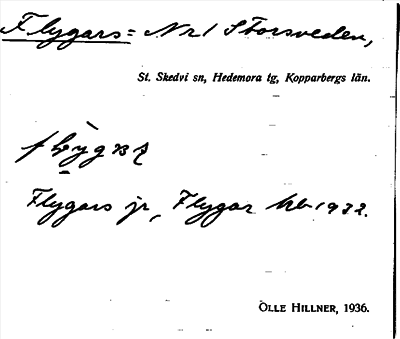 Flygars = Nr 1 Storsveden,
St. Skedvi sn, Hedemora tg, Kopparbergs län.
Flygars jr, Flygar hb 1922.
OLLE HILLNER, 1936.